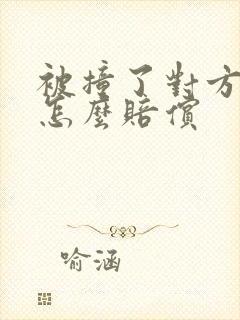 被撞了對方
怎麼賠償
喻涵